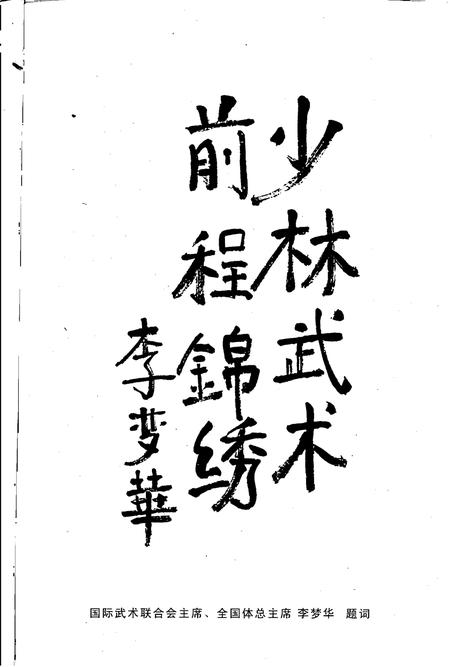 少林武术
前程錦绣
李梦華
国际武术联合会主席、全国体总主席 李梦华 题词